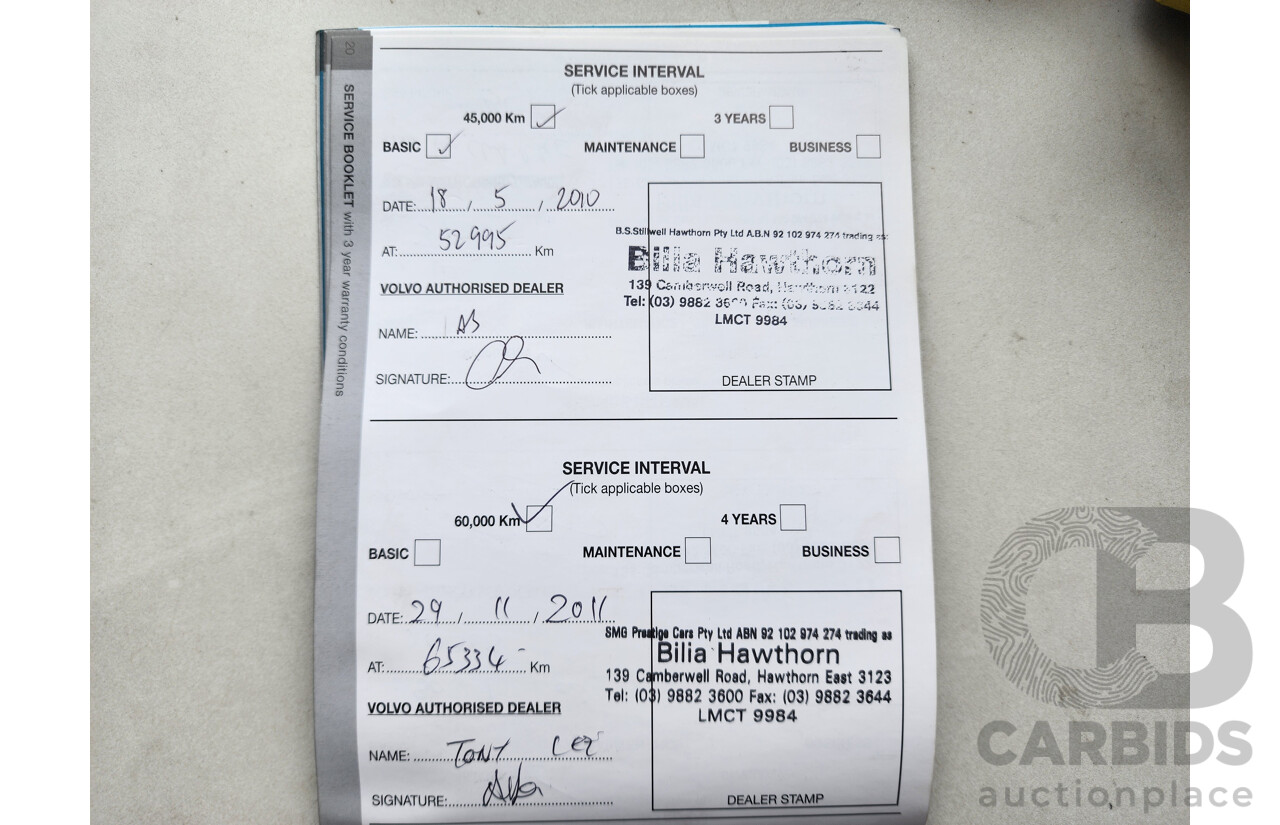 20
SERVICE BOOKLET with 3 year warranty conditions
SERVICE INTERVAL
(Tick applicable boxes)
45,000 Km 3 YEARS
BASIC MAINTENANCE BUSINESS
DATE: 18, 5, 2010
AT: 52995 Km
VOLVO AUTHORISED DEALER
NAME: AB
SIGNATURE:
B.S.Stillwell Hawthorn Pty Ltd A.B.N 92 102 974 274 trading as:
Bilia Hawthorn
139 Camberwell Road, Hawthorn 3122
Tel: (03) 9882 3600 Fax: (03) 9882 3644
LMCT 9984
DEALER STAMP
SERVICE INTERVAL
(Tick applicable boxes)
60,000 Km 4 YEARS
BASIC MAINTENANCE BUSINESS
DATE: 29, 11, 2011
AT: 65334 Km
VOLVO AUTHORISED DEALER
NAME: TONY LEE
SIGNATURE:
SMG Prestige Cars Pty Ltd ABN 92 102 974 274 trading as
Bilia Hawthorn
139 Camberwell Road, Hawthorn East 3123
Tel: (03) 9882 3600 Fax: (03) 9882 3644
LMCT 9984
DEALER STAMP
CARBIDS
auctionplace